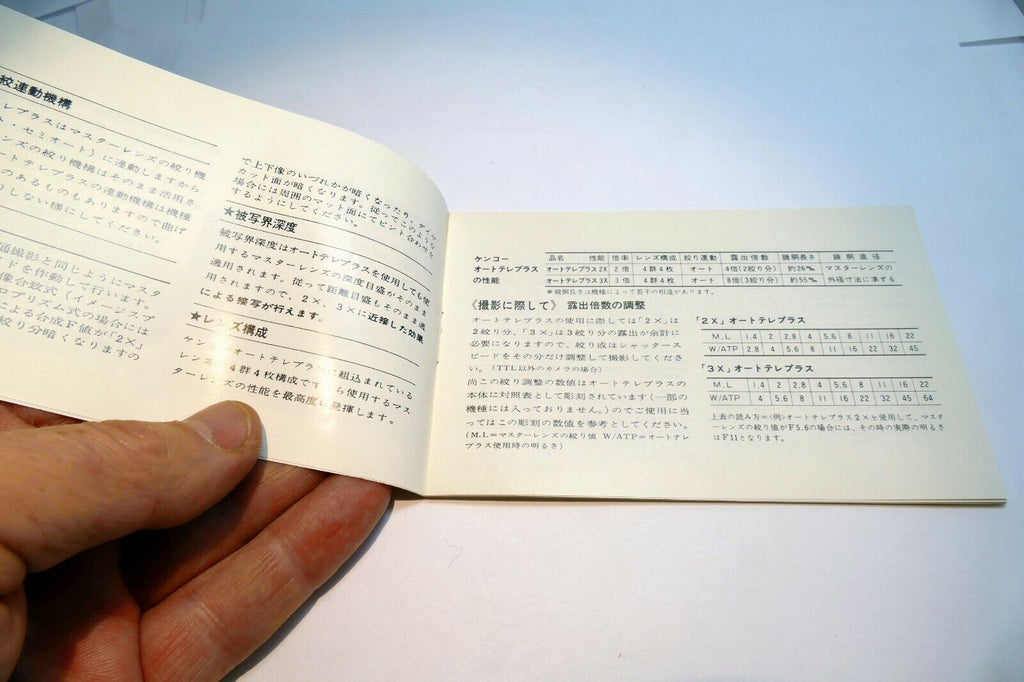 絞連動機構
レプラスはマスターレンズの絞り機
・セミオート)に連動しますから
ンズの絞り機構はそのまま活用さ
ートテレプラスの連動機構は機種
のあるものもありますので曲げ
りしない様にしてください。
通撮影と同じようにマスタ
ードを作動して行います。
像合致式(イメージスプ
プリズム式の場合には
よる合成F値が「2×」
絞り分暗くなりますの
で上下像のいづれかが暗くなったり、
カット面が暗くなります。従ってこのような
場合には周囲のマット面にてピント合わせを
するようにしてください。
★被写界深度
被写界深度はオートテレプラスを使用しても使
用するマスターレンズの深度目盛がそのまま
適用されます。従って距離目盛もそのまま適
用されますので、2×、3×に近接した効果
による接写が行えます。
★レンズ構成
ケンコーオートテレプラスに組込まれている
レンズは4群4枚構成ですから使用するマス
ターレンズの性能を最高度に発揮します。
ケンコー
オートテレプラス
の性能
品名 性能 倍率 レンズ構成 絞り運動 露出倍数 鏡胴長さ 鏡胴直径
オートテレプラス2X 2倍 4群4枚 オート 4倍(2絞り分) 約26㎜ マスターレンズの
オートテレプラス3X 3倍 4群4枚 オート 8倍(3絞り分) 約55㎜ 外径寸法に準ずる
※鏡胴長さは機種によって若干の相違があります。
《撮影に際して》 露出倍数の調整
オートテレプラスの使用に際しては「2×」は
2絞り分、「3×」は3絞り分の露出が余計に
必要になりますので、絞り或はシャッタース
ピードをその分だけ調整して撮影してくださ
い。(TTL以外のカメラの場合)
尚この絞り調整の数値はオートテレプラスの
本体に対照表として彫刻されています(一部の
機種には入っておりません。)のでご使用に当
ってはこの彫刻の数値を参考としてください。
(M.L=マスターレンズの絞り値 W/ATP=オートテレ
プラス使用時の明るさ)
「2X」オートテレプラス
M.L 1.4 2 2.8 4 5.6 8 11 16 22
W/ATP 2.8 4 5.6 8 11 16 22 32 45
「3X」オートテレプラス
M.L 1.4 2 2.8 4 5.6 8 11 16 22
W/ATP 4 5.6 8 11 16 22 32 45 64
上表の読み方=(例)オートテレプラス2×を使用して、マスタ
ーレンズの絞り値がF5.6の場合には、その時の実際の明るさ
はF11となります。